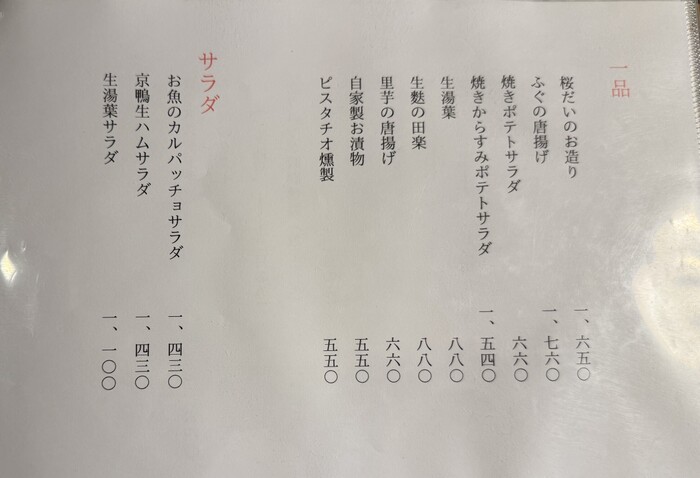 一品
桜だいのお造り 一、六五〇
ふぐの唐揚げ 一、七六〇
焼きポテトサラダ 六六〇
焼きからすみポテトサラダ 一、五四〇
生湯葉 八八〇
生麩の田楽 八八〇
里芋の唐揚げ 六六〇
自家製お漬物 五五〇
ピスタチオ燻製 五五〇
サラダ
お魚のカルパッチョサラダ 一、四三〇
京鴨生ハムサラダ 一、四三〇
生湯葉サラダ 一、一〇〇